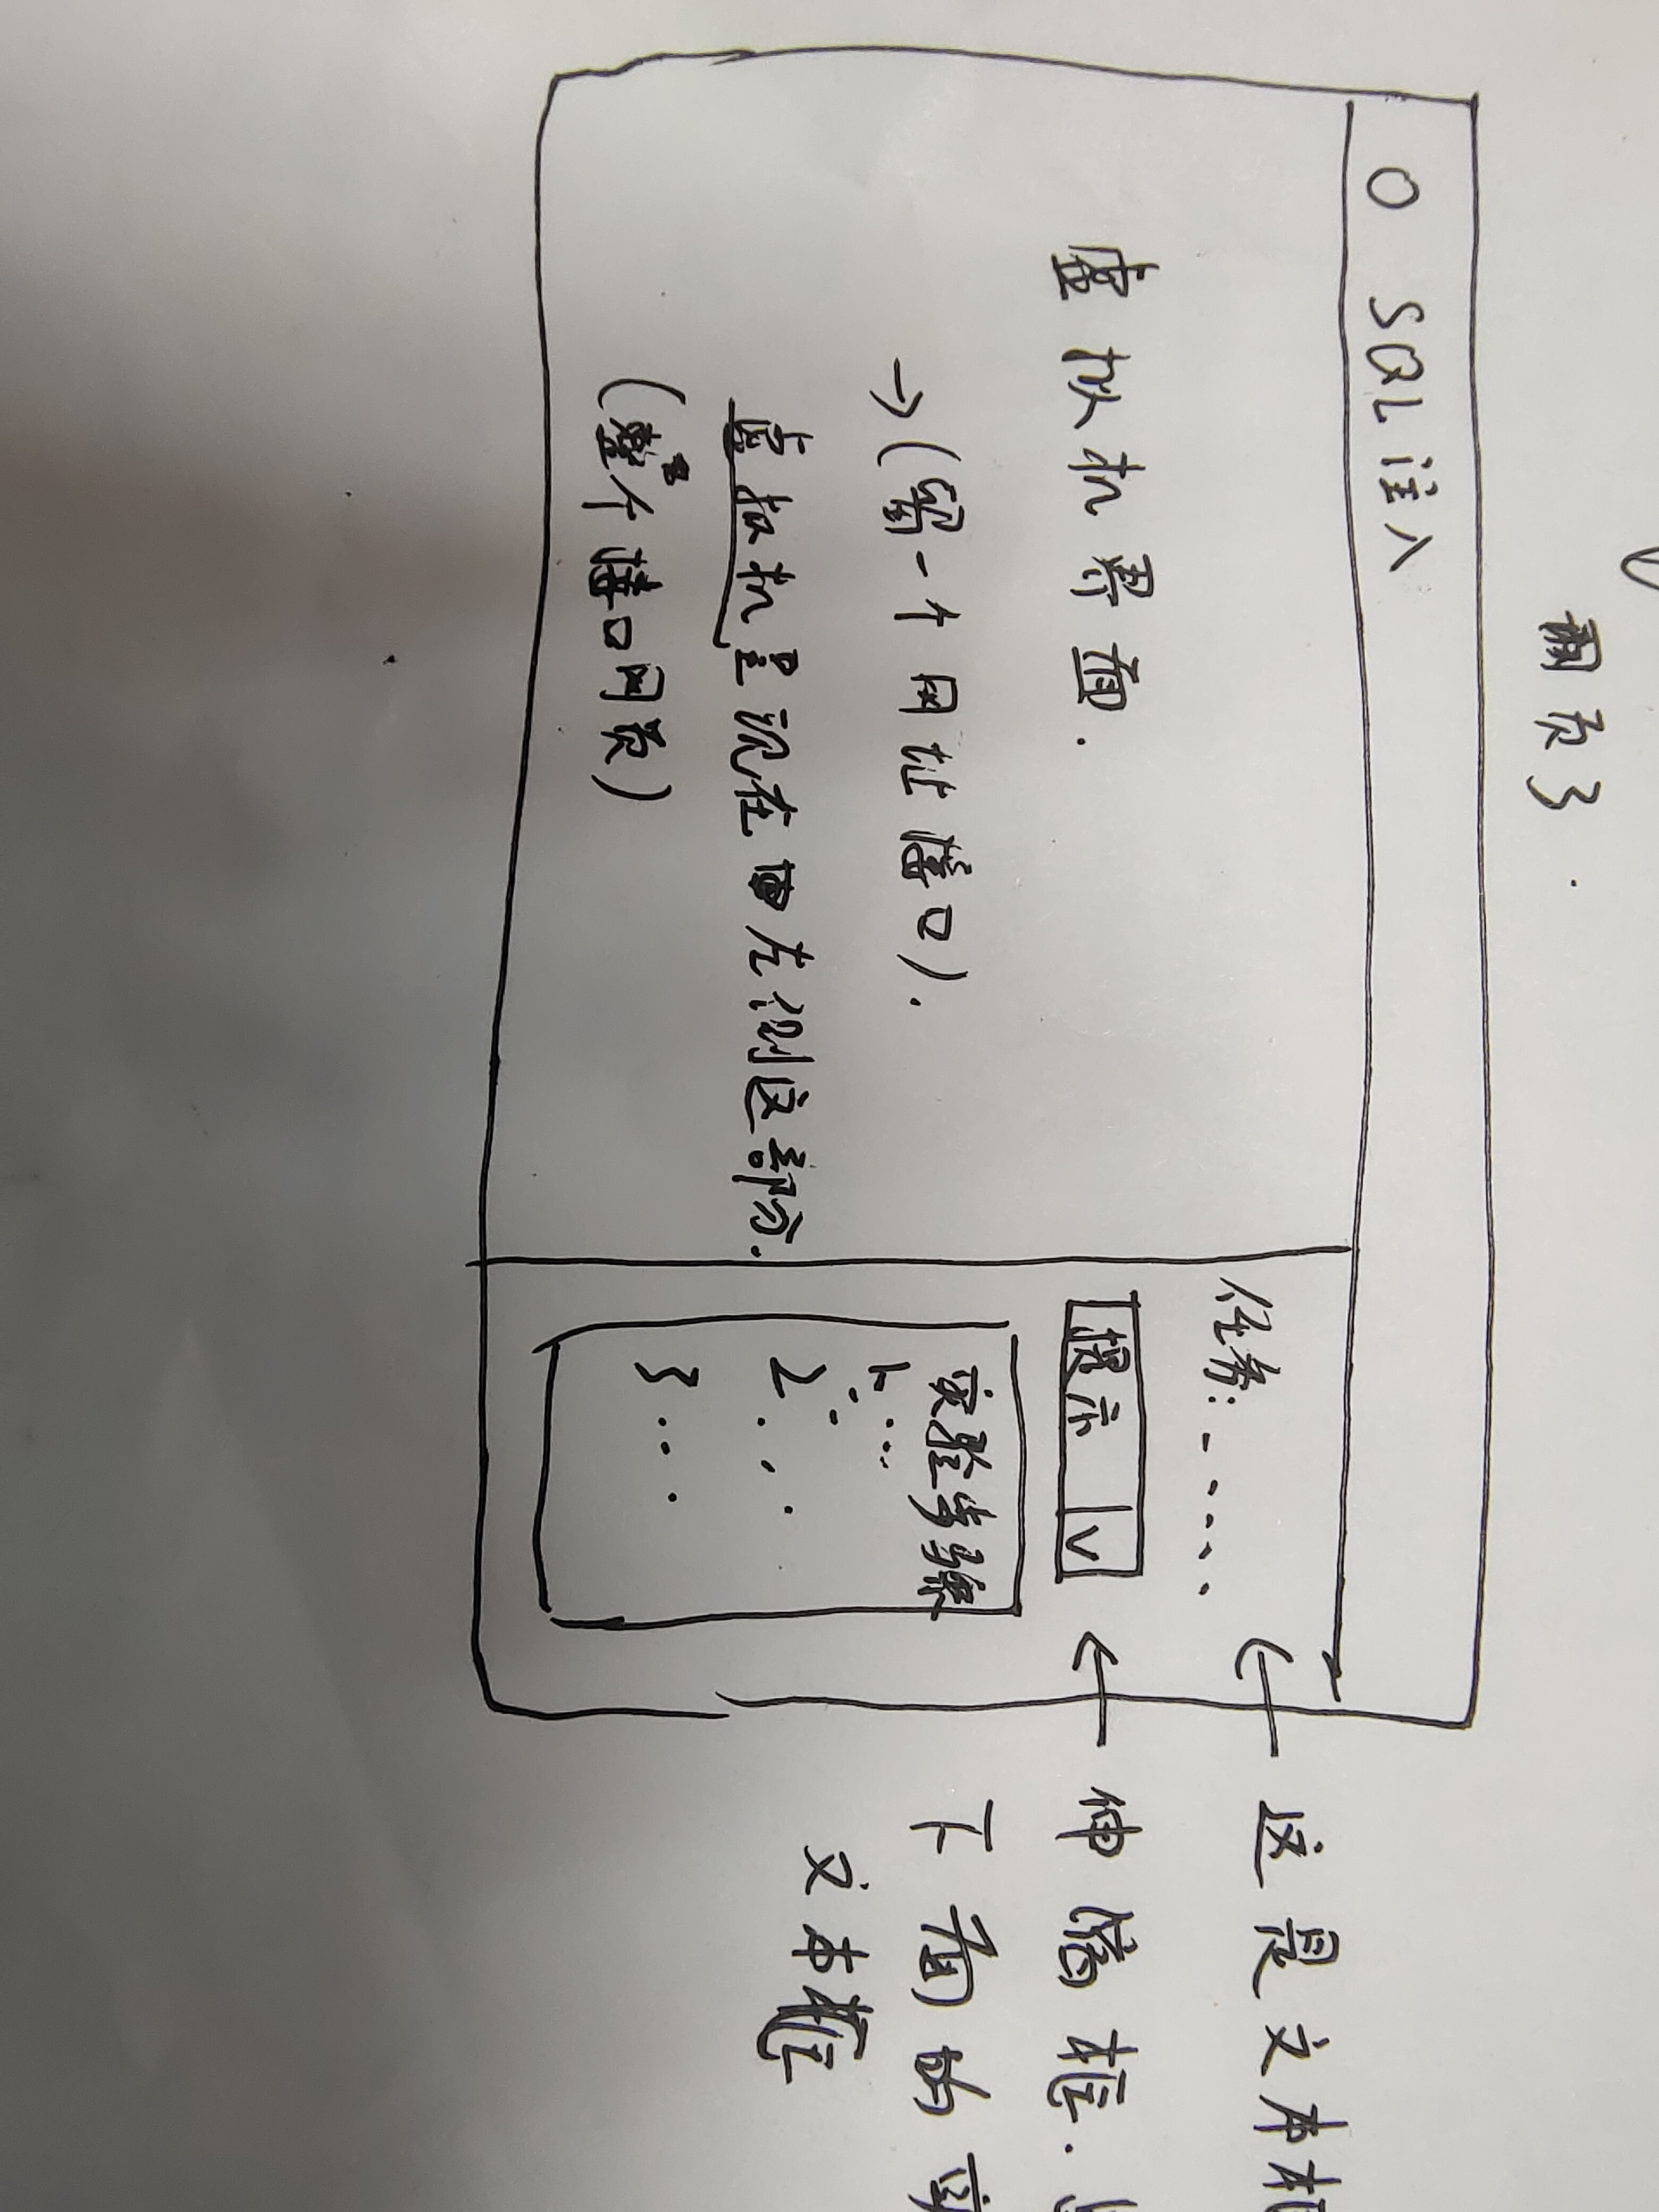 翻页了.
O SQL注入
虚拟机界面.
→(留一个网址接口).
虚拟机呈现在左侧这部分.
(整个接口网页)
任务: .....
提示 ∨
实验步骤
1. ...
2 ...
3 ...
← 这是文本
← 伸缩框.
下面的
文本框